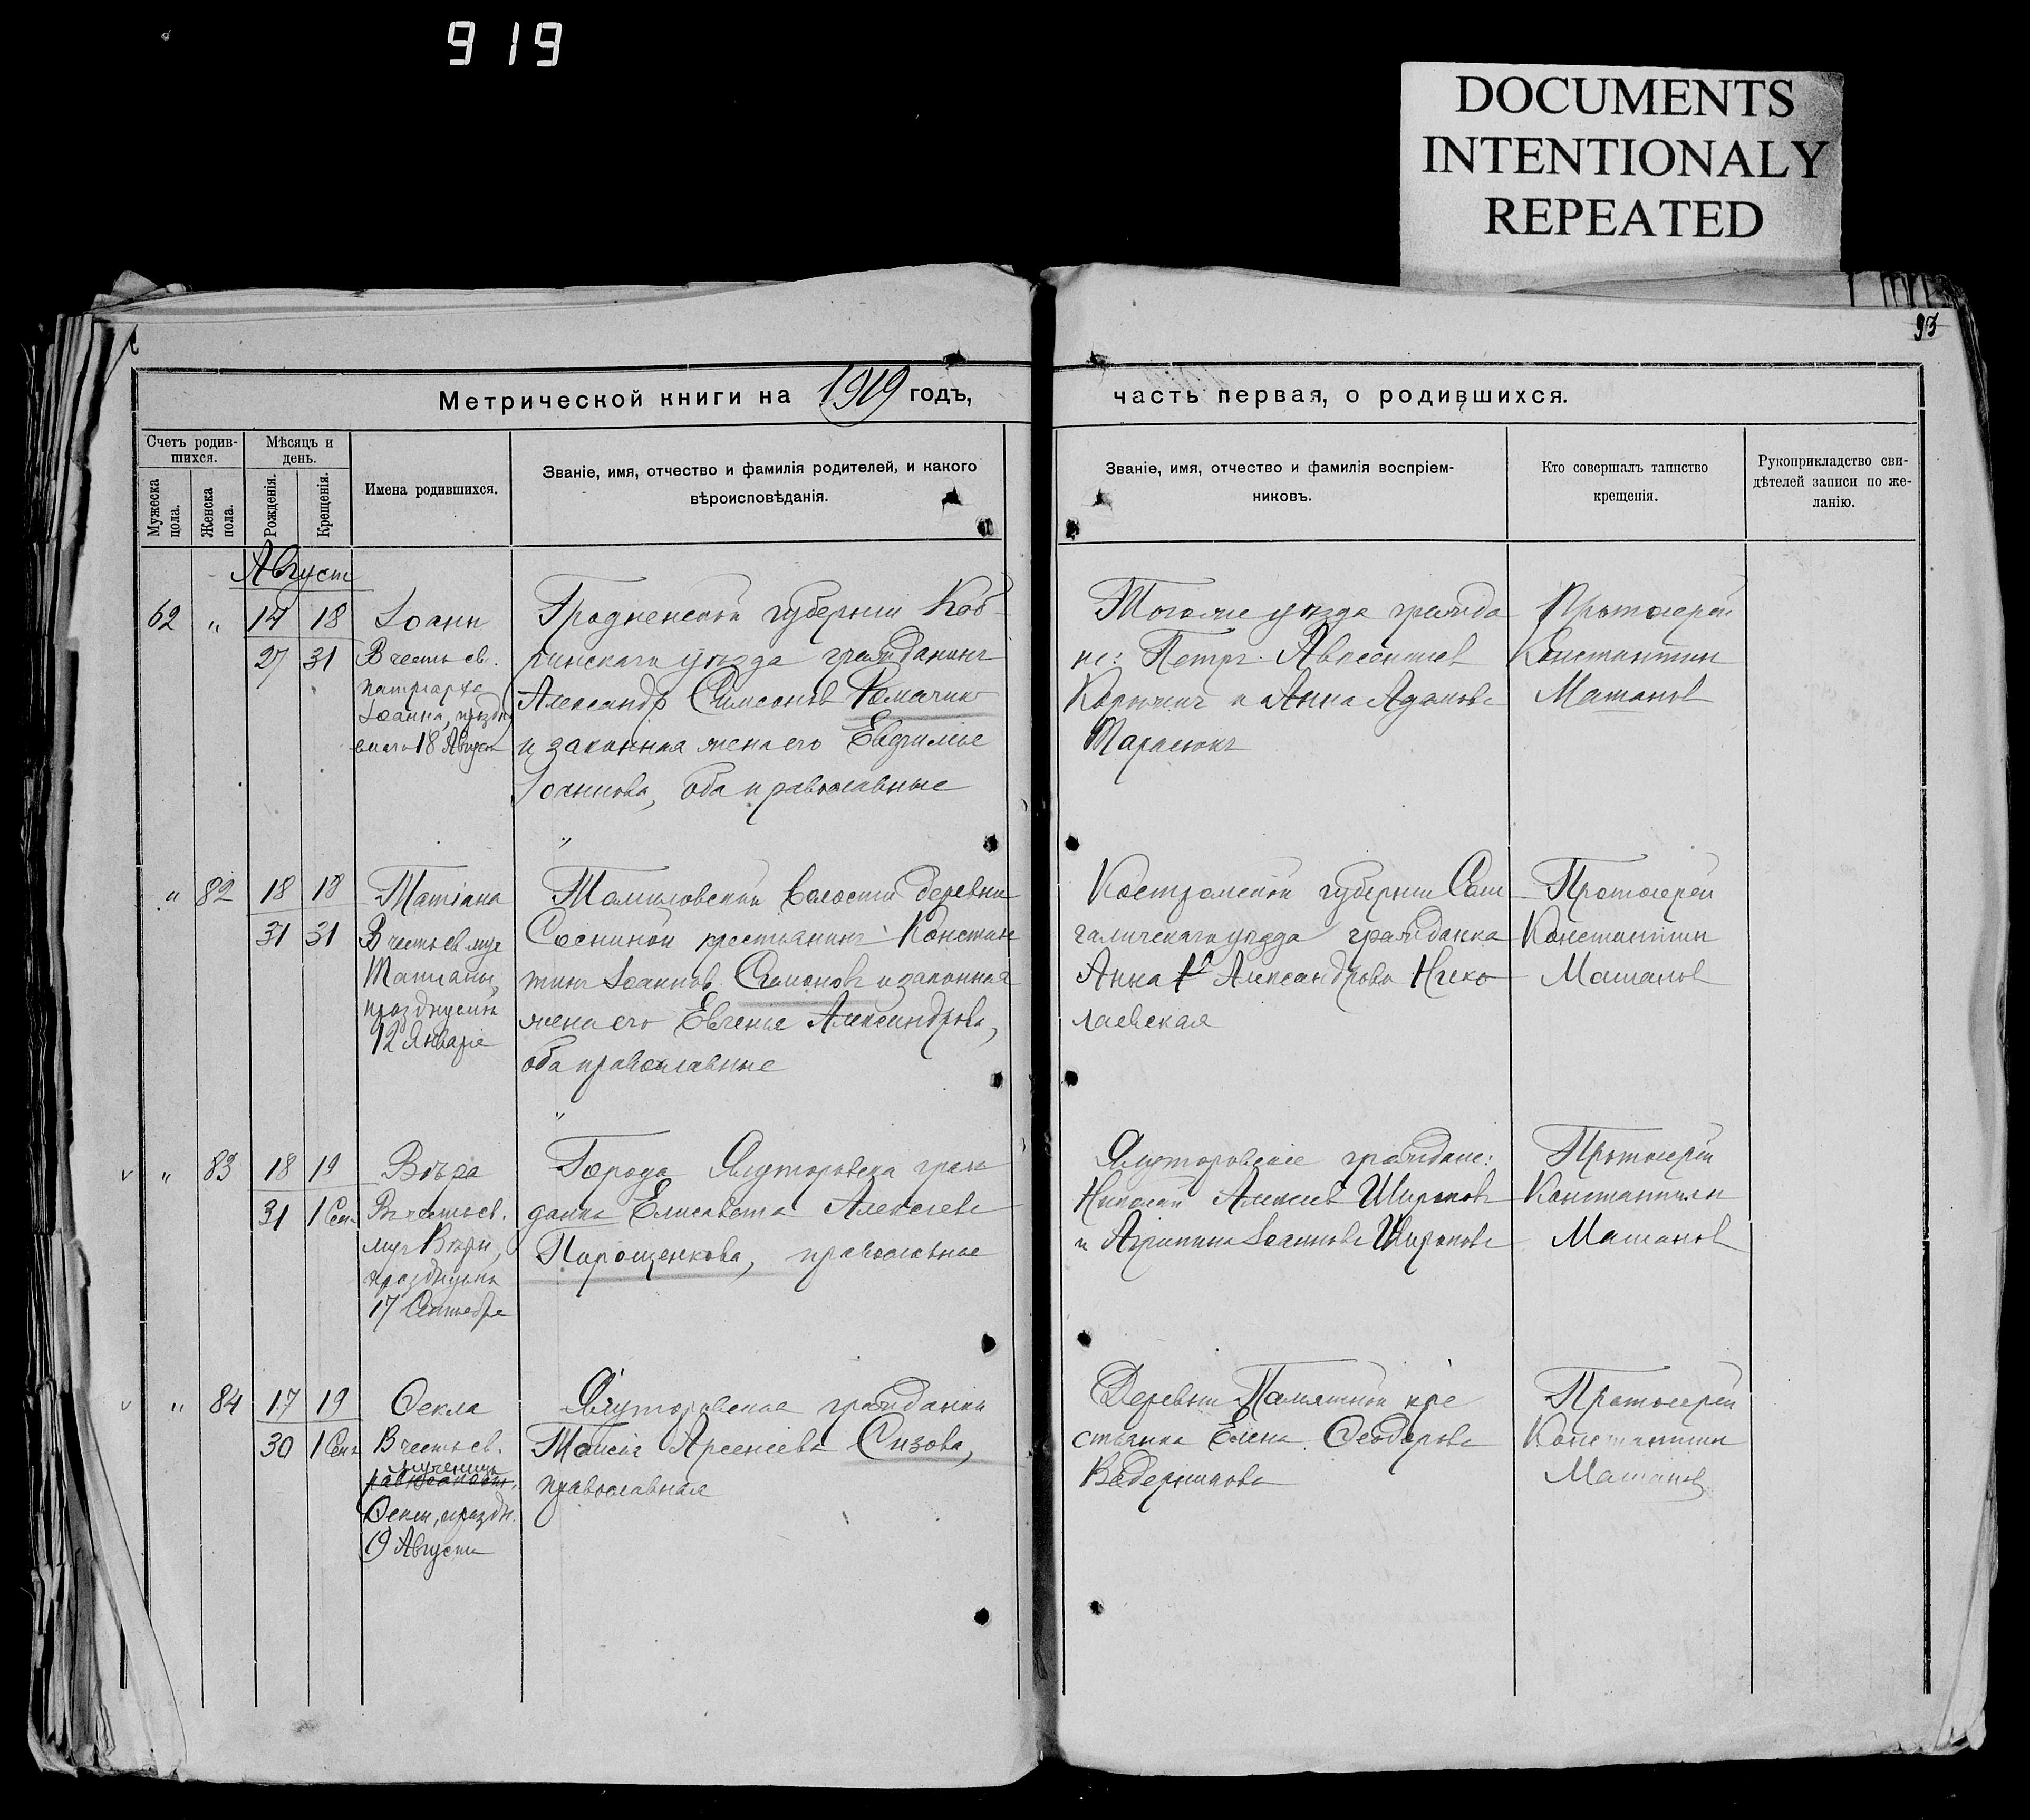 919
DOCUMENTS
INTENTIONALY
REPEATED
93
Метрической книги на 1919 годъ,
часть первая, о родившихся.
Счетъ родив-
шихся.
Мужеска
пола.
Женска
пола.
Мѣсяцъ и
день.
Рожденія.
Крещенія.
Имена родившихся.
Званіе, имя, отчество и фамилія родителей, и какого
вѣроисповѣданія.
Званіе, имя, отчество и фамилія воспріем-
никовъ.
Кто совершалъ таинство
крещенія.
Рукоприкладство сви-
дѣтелей записи по же-
ланію.
Август
62 " 14 18
27 31
Іоанн
В честь св.
патриарха
Іоанна, праздн
емаго 18 Август
Гродненской губернии Коб-
ринскаго уѣзда гражданинъ
Александр Симеонов
и законная жена его Евфимія
Іоаннова, оба православные
Тогоже уѣзда гражда
не: Петръ
и Анна Адамова
Тарасюкъ
Протоіерей
Константин
Машанов
" 82 18 18
31 31
Татіана
В честь св муч
Татіаны,
празднуемой
12 Января
Томиловской волости деревни
Сосниной крестьянинъ Констан
тин Іоаннов Симоновъ и законная
жена его Евгенія Александрова,
оба православные
Костромской губернии Сол
галичскаго уѣзда гражданка
Анна Александрова Нико
лаевская
Протоіерей
Константин
Машанов
" 83 18 19
31 1 Сен
Вѣра
В честь св.
муч Вѣры,
празднуемой
17 Сентября
Города Ялуторовска граж
данка Елисавета Алексеева
Парошенкова, православная
Ялуторовские граждане:
Николай Алексеев Широковъ
и Агрипина Іоаннова Широкова
Протоіерей
Константин
Машанов
" 84 17 19
30 1 Сен
Ѳекла
В честь св.
мученицы
Ѳеклы, праздн.
19 Августа
Ялуторовская гражданка
Таисія Арсениева Сизова,
православная
Деревни Памятной кре
стьянка Елена Ѳеодорова
Ведерникова
Протоіерей
Константин
Машанов